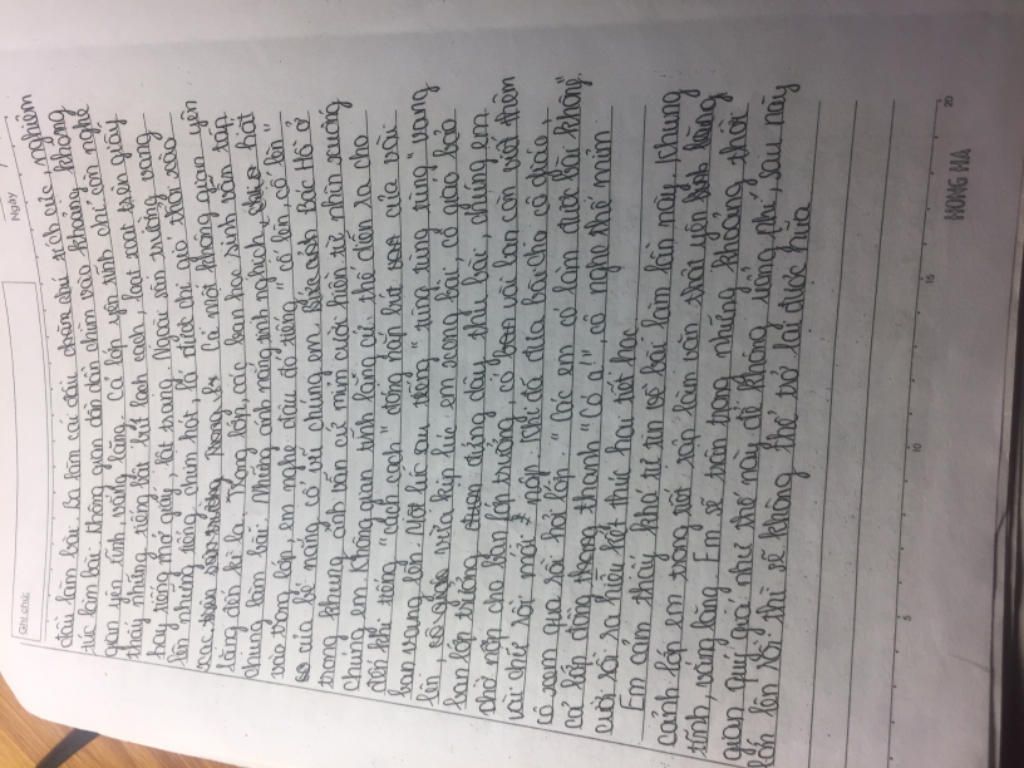 Ngày
Ghi chú:
dài làm bài. Ba lăm cái đầu chăm chú tích cực, nghiêm
túc làm bài thông gian dần dần chìm vào khoảng không
gian yên tĩnh, vắng lặng. Cả lớp yên tĩnh chỉ còn nghe
thấy những tiếng bút bi sột soạt trên giấy
hay tiếng mở giấy, lật trang. Ngoài sân trường vang
lên những tiếng chim hót lá diệt chi vi vo thổi xào
xạc Có mỗi không quan yên
lặng đến kì lạ. Trong lớp, các bạn học sinh vẫn tập
chung làm bài. Những ánh nắng tinh nghịch hắt
vào trong lớp, em nghe đâu đó tiếng "cố lên, cố lên"
của bé nắng cổ vũ chúng em. Bức ảnh Bác Hồ ở
trong khung ảnh vẫn cứ mỉm cười hiền từ nhìn xuống
chúng em. Không gian tĩnh lặng cứ thế diễn ra cho
đến khi tiếng "lạch cạch" đóng nắp bút của vài
bạn vang lên. Một lúc sau tiếng "tùng tùng tùng" vang
lên, vừa kịp lúc em xong bài, cô giáo bảo
bạn lớp trưởng đứng dậy thu bài, chúng em
chờ nộp cho bạn lớp trưởng có vài bạn còn viết thêm
vài chữ rồi mới nộp. Khi đã đưa bài cho cô giáo,
cô xem qua rồi hỏi lớp: "Các em có làm được bài không?"
cả lớp đồng thanh "Có ạ", cô nghe thế mỉm
cười rồi ra hiệu kết thúc hai tiết học.
Em cảm thấy khá tự tin về bài làm lần này, khung
cảnh lớp em trong tiết tập làm văn thật yên
tĩnh, vắng lặng. Em sẽ trân trọng những khoảng thời
gian quý giá như thế này để không lãng phí, sau này
lớn lên rồi thì sẽ không thể trở lại được nữa.
5 10 15 20
HONG HA